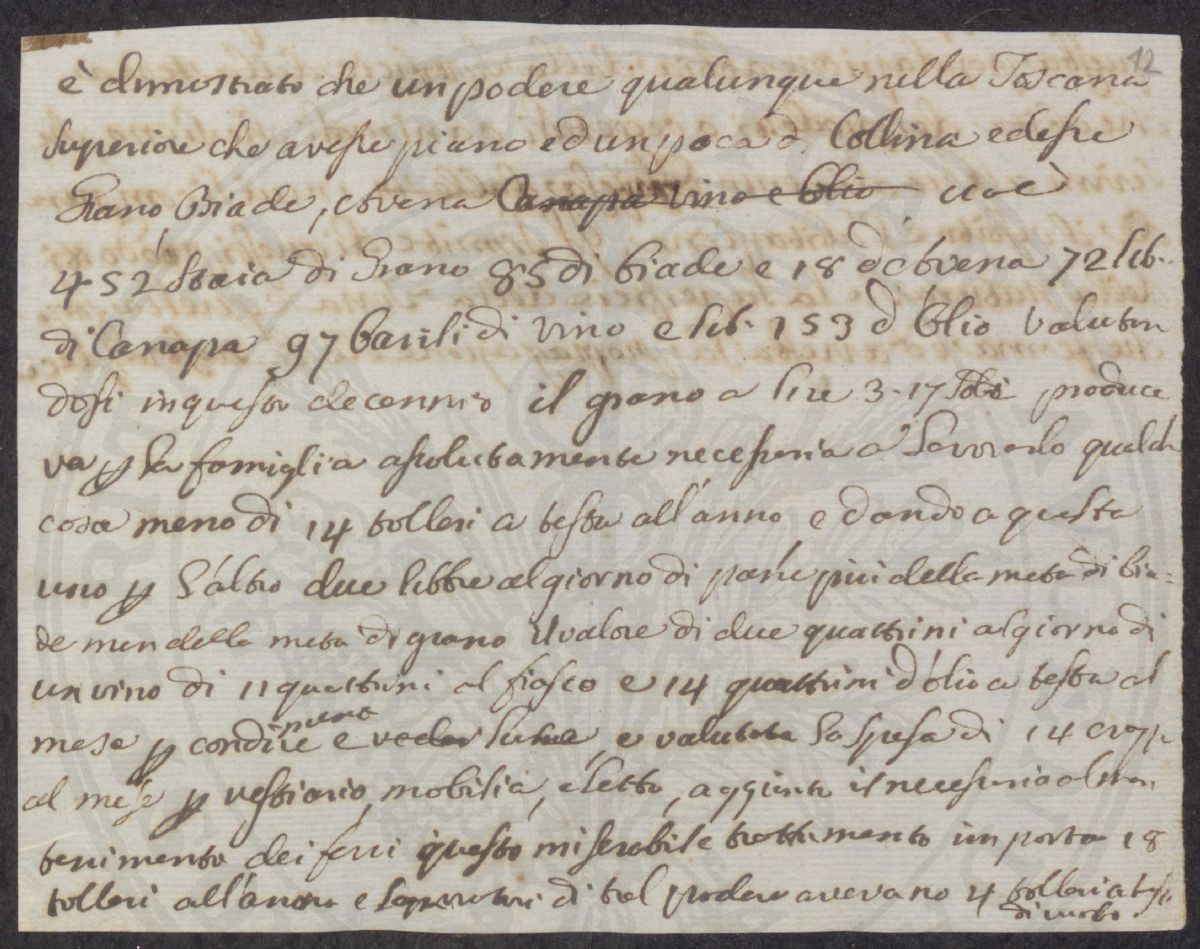 12
è dimostrato che un podere qualunque nella Toscana
Superiore che avesse piano ed un poca di Collina e desse
Grano, Biade, e Avena Canapa vino e Olio cioè
452 Staia di Grano 85 di biade e 18 d'Avena 72 lib.
di Canapa 97 barili di vino e lib. 153 d'Olio valutan
dosi in questo decennio il grano a lire 3.17 produce
va p la famiglia assolutamente necessaria a lavorarlo qualch
cosa meno di 14 talleri a testa all'anno, e dando a questa
uno p l'altro due libbre al giorno di pane più della metà di bia=
de men della metà di grano il valore di due quattrini al giorno di
un vino di 11 quattrini al fiasco e 14 quattrini d'olio a testa al
mese p condire e e valutata la spesa di 14
al mese p vestiario, mobilia, e letto, aggiunto il necessario al man
tenimento dei ferri questo miserabile trattamento importa 18
talleri all'anno e di tal podere avevano 4 talleri a testa
di vuoto.